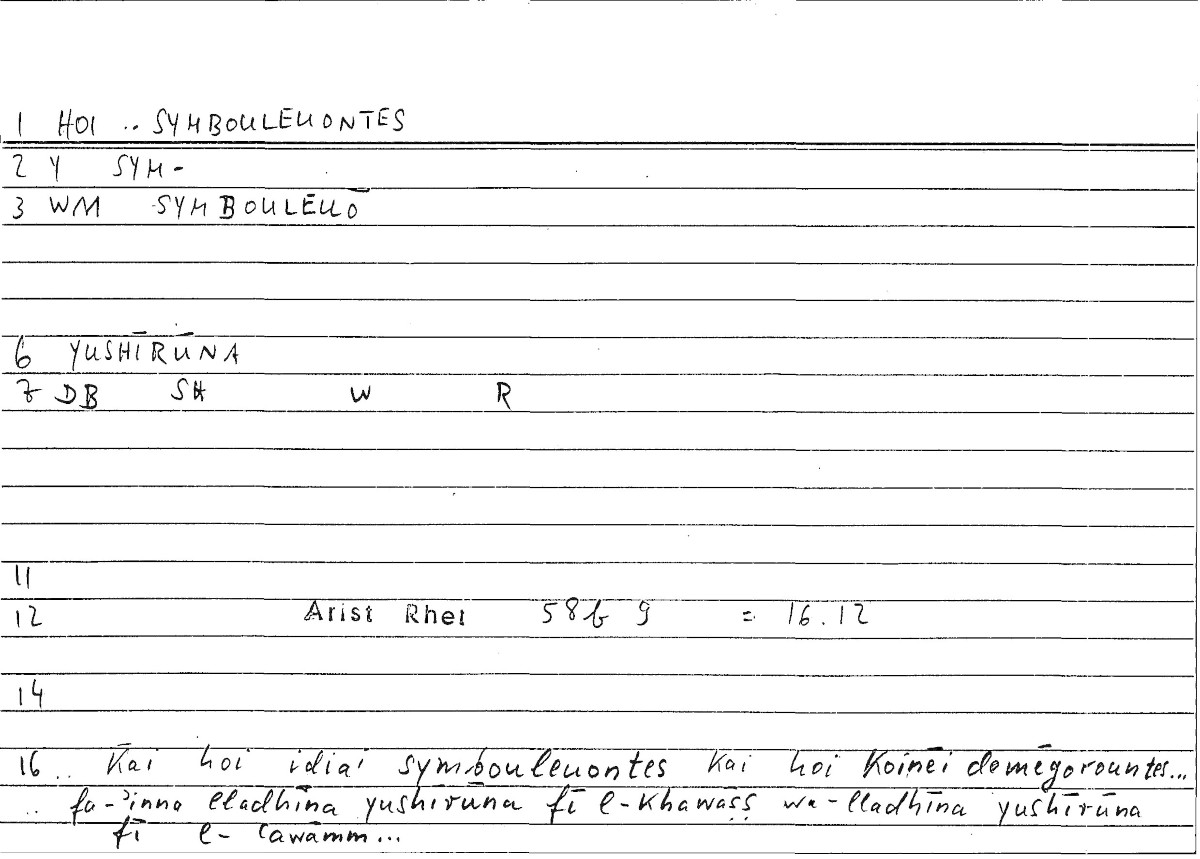 1 HOI .. SYMBOULEUONTES
2 Y SYM-
3 WM SYMBOULEUŌ
6 YUSHĪRŪNA
7 DB SH W R
11
12 Arist Rhet 58b 9 = 16.12
14
16 .. Kai hoi idiai symbouleuontes kai hoi koinēi dēmēgorountes...
.. fa-'inna lladhīna yushīrūna fī l-khawāṣṣ wa-lladhīna yushīrūna
fī l-ʿawāmm...